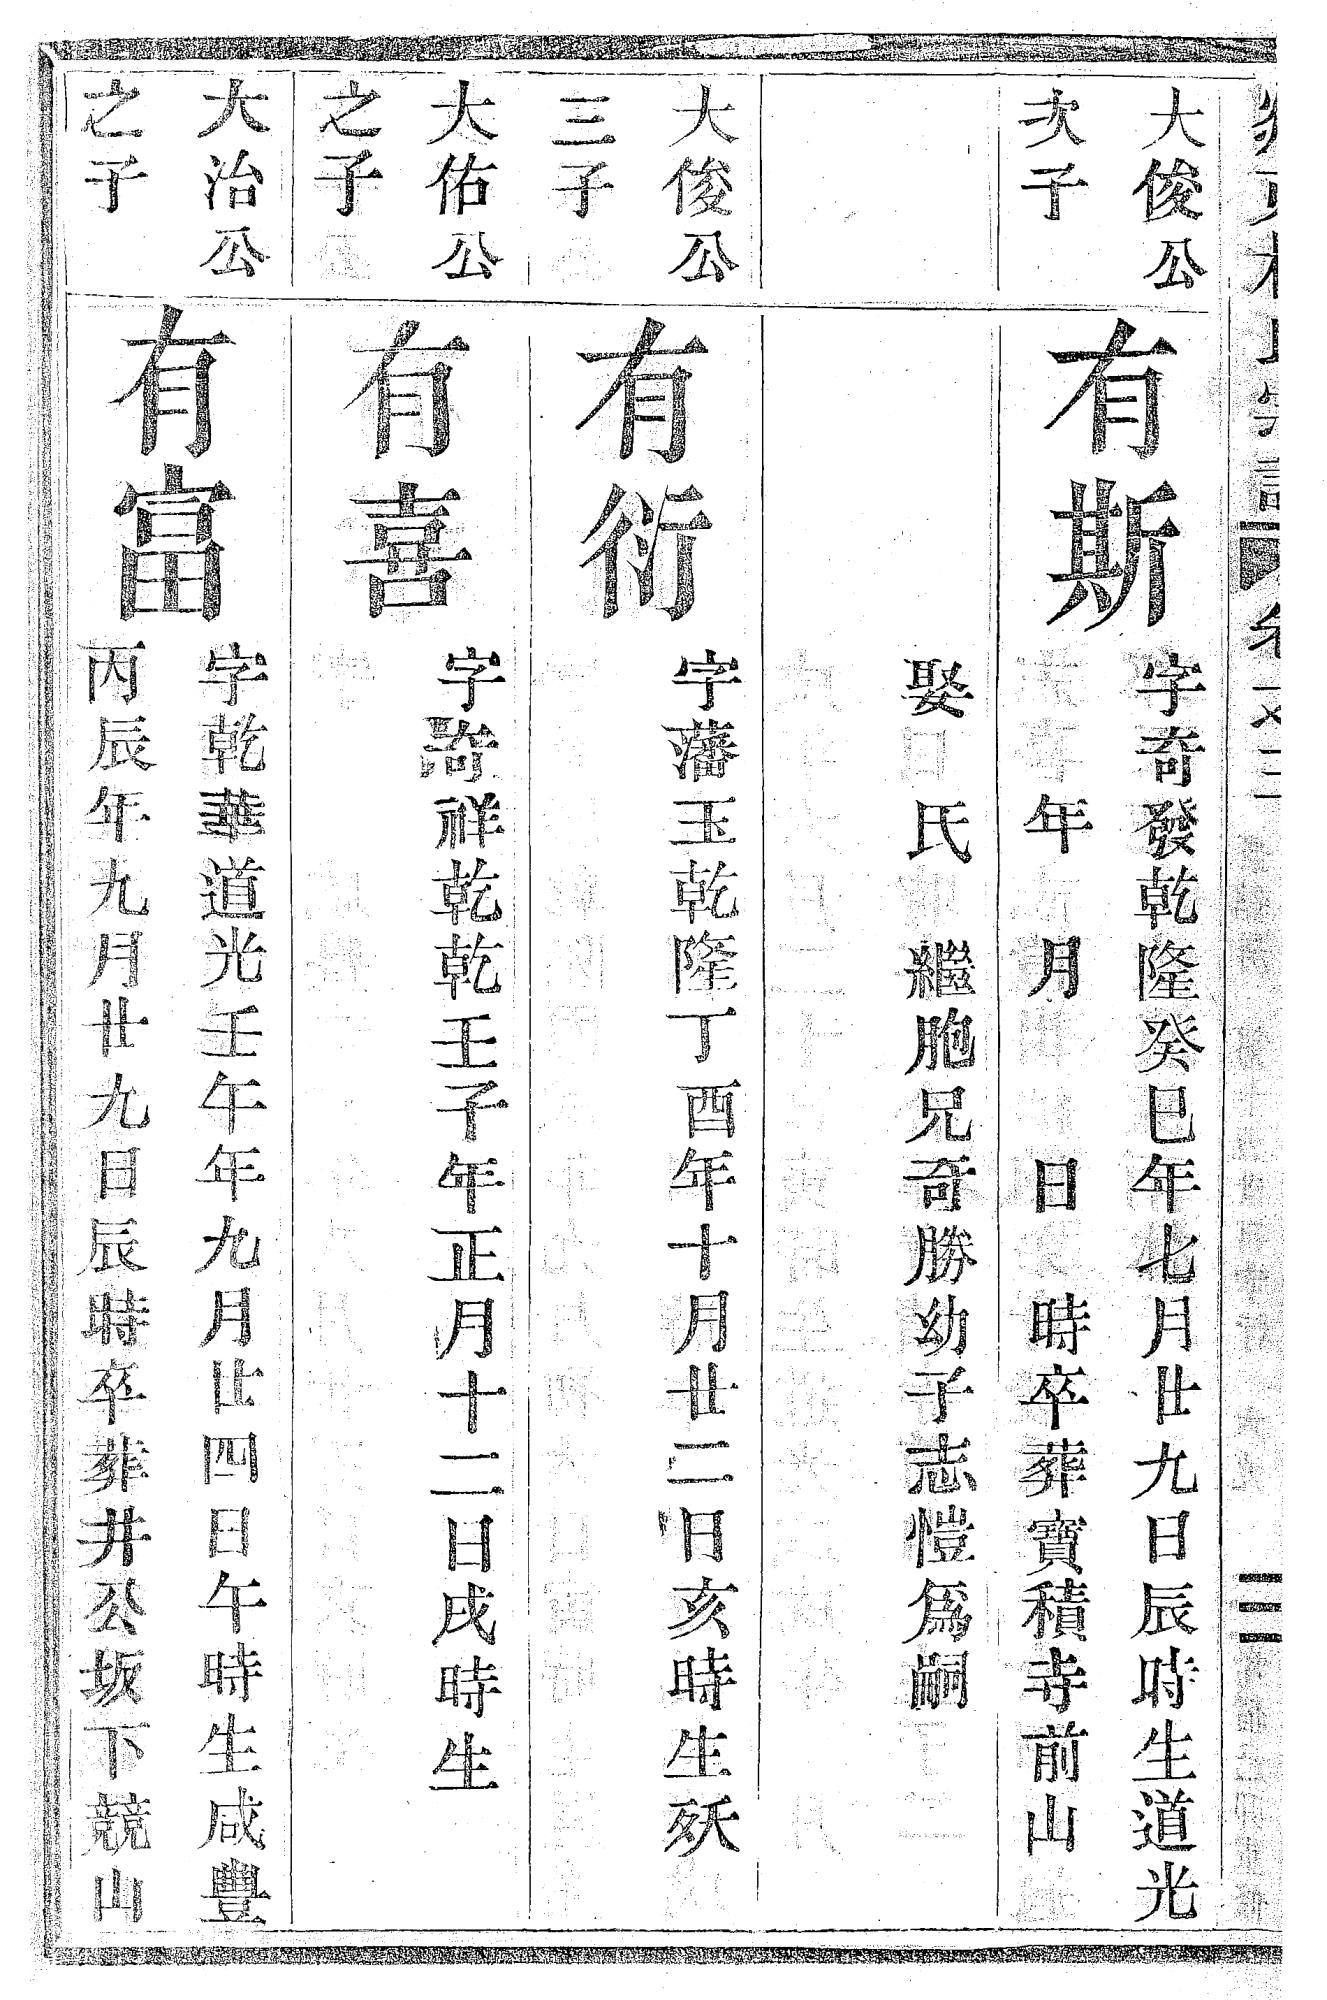 大俊公
次子
有斯
字奇發乾隆癸巳年七月廿九日辰時生道光
年 月 日 時卒葬寶積寺前山
娶 氏 繼胞兄奇勝幼子志愷爲嗣
大俊公
三子
有衍
字藩玉乾隆丁酉年十月廿二日亥時生殀
大佑公
之子
有喜
字 祥乾乾壬子年正月十二日戌時生
大治公
之子
有富
字乾華道光壬午年九月廿四日午時生咸豐
丙辰年九月廿九日辰時卒葬井公坂下競山